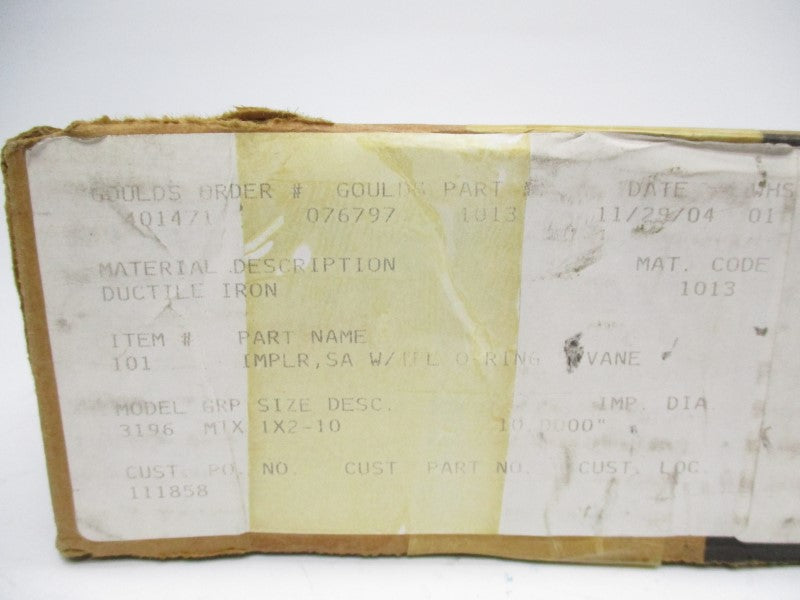 GOULDS ORDER # GOULDS PART # DATE WHS
401471 076797 1013 11/29/04 01
MATERIAL DESCRIPTION MAT. CODE
DUCTILE IRON 1013
ITEM # PART NAME
101 IMPLR,SA O-RING VANE
MODEL GRP SIZE DESC. IMP. DIA
3196 MTX 1X2-10 10.0000"
CUST. PO. NO. CUST PART NO. CUST. LOC.
111858